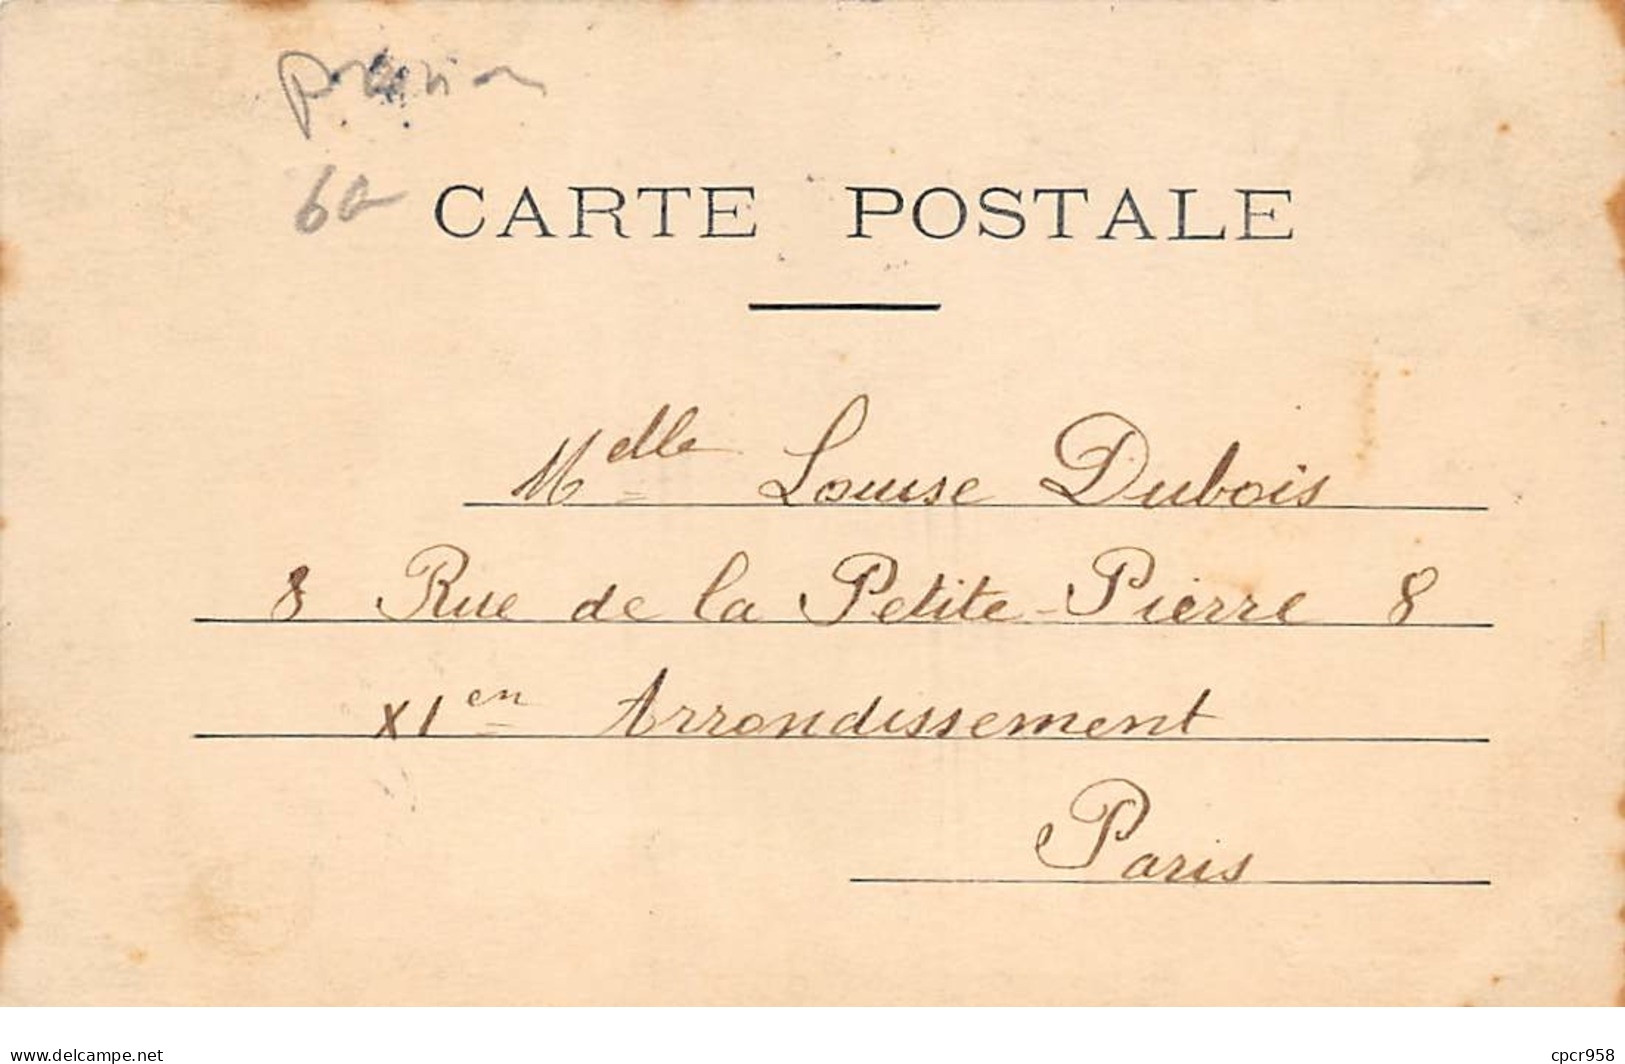 60
CARTE POSTALE
Melle Louise Dubois
8 Rue de la Petite-Pierre 8
XIen Arrondissement
Paris
delcampe.net
cpcr958